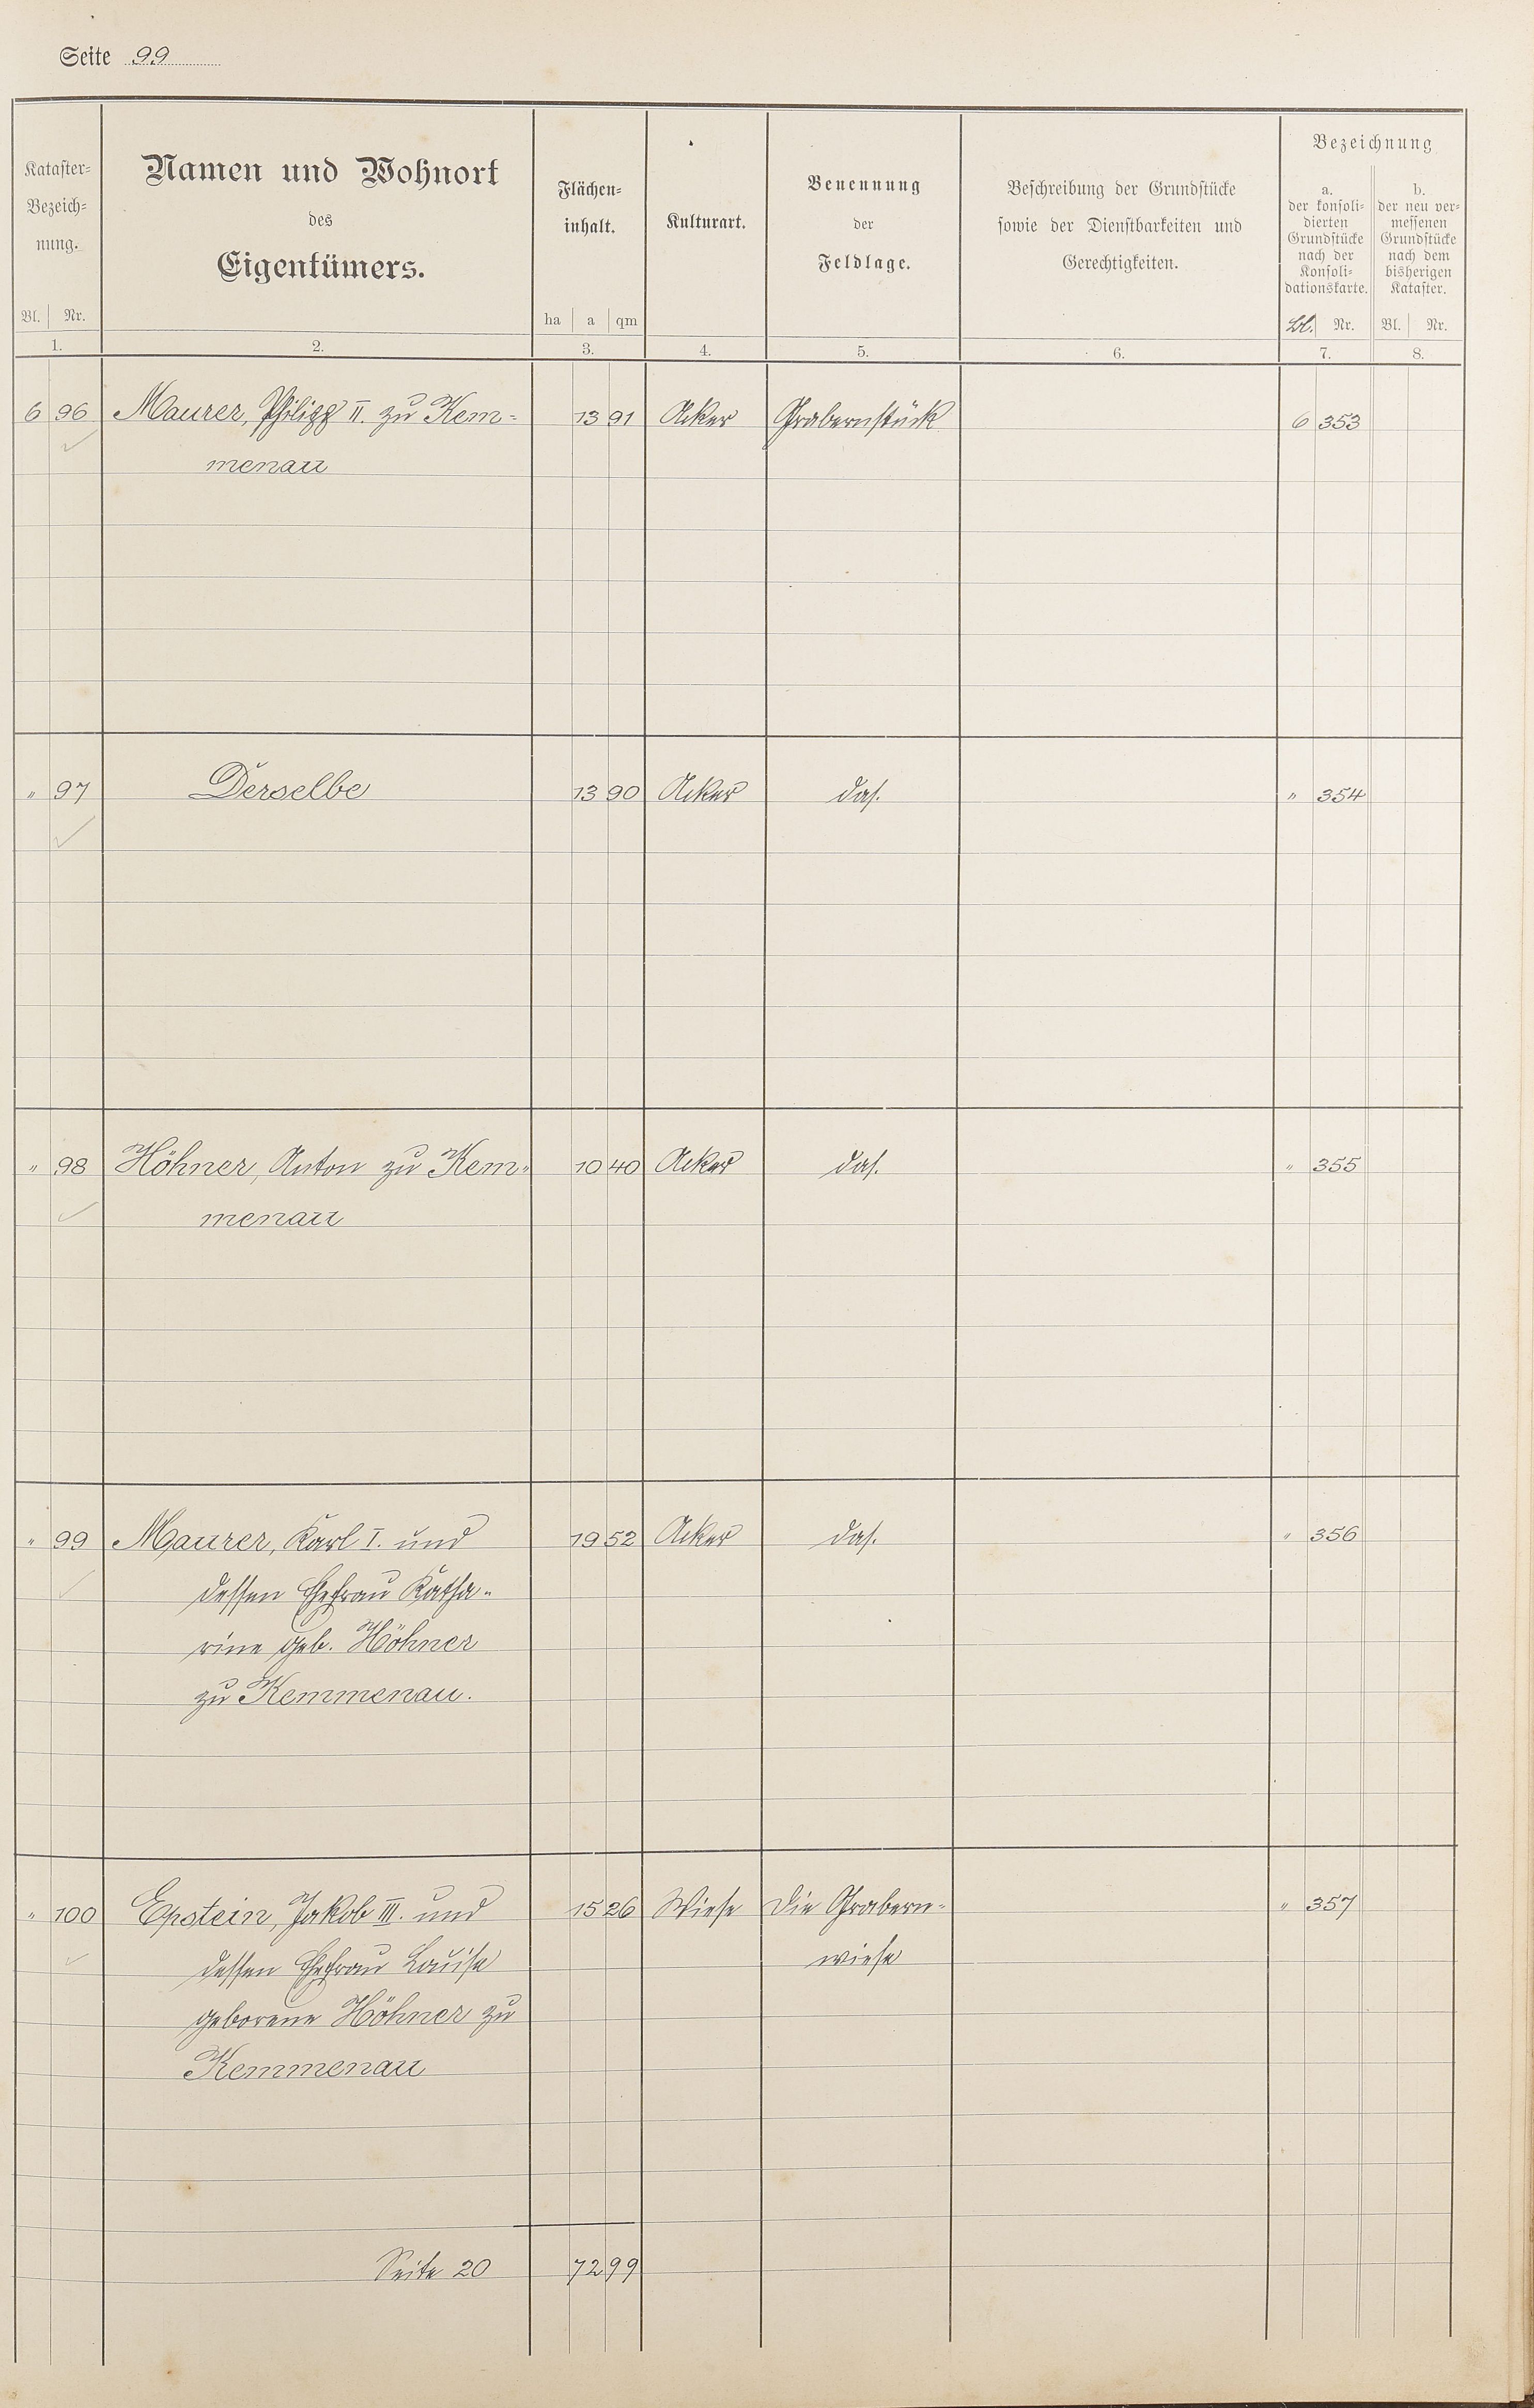 Seite 99
Kataster-
Bezeich-
nung.
Bl. Nr.
1.
Namen und Wohnort
des
Eigentümers.
2.
Flächen-
inhalt.
ha a qm
3.
Kulturart.
4.
Benennung
der
Feldlage.
5.
Beschreibung der Grundstücke
sowie der Dienstbarkeiten und
Gerechtigkeiten.
6.
Bezeichnung
a.
der konsoli-
dierten
Grundstücke
nach der
Konsoli-
dationskarte.
Bl. Nr.
7.
b.
der neu ver-
messenen
Grundstücke
nach dem
bisherigen
Kataster.
Bl. Nr.
8.
6 96 Maurer, Philipp II. zu Kem- 13 91 Acker Grabernstück 6 353
menau
" 97 Derselbe 13 90 Acker das. " 354
" 98 Höhner, Anton zu Kem- 10 40 Acker das. " 355
menau
" 99 Maurer, Karl I. und 19 52 Acker das. " 356
dessen Ehefrau Katha-
rine geb. Höhner
zu Kemmenau.
" 100 Epstein, Jakob III. und 15 26 Wiese Die Grabern- " 357
dessen Ehefrau Louise wiese
geborene Höhner zu
Kemmenau
Seite 20 72 99